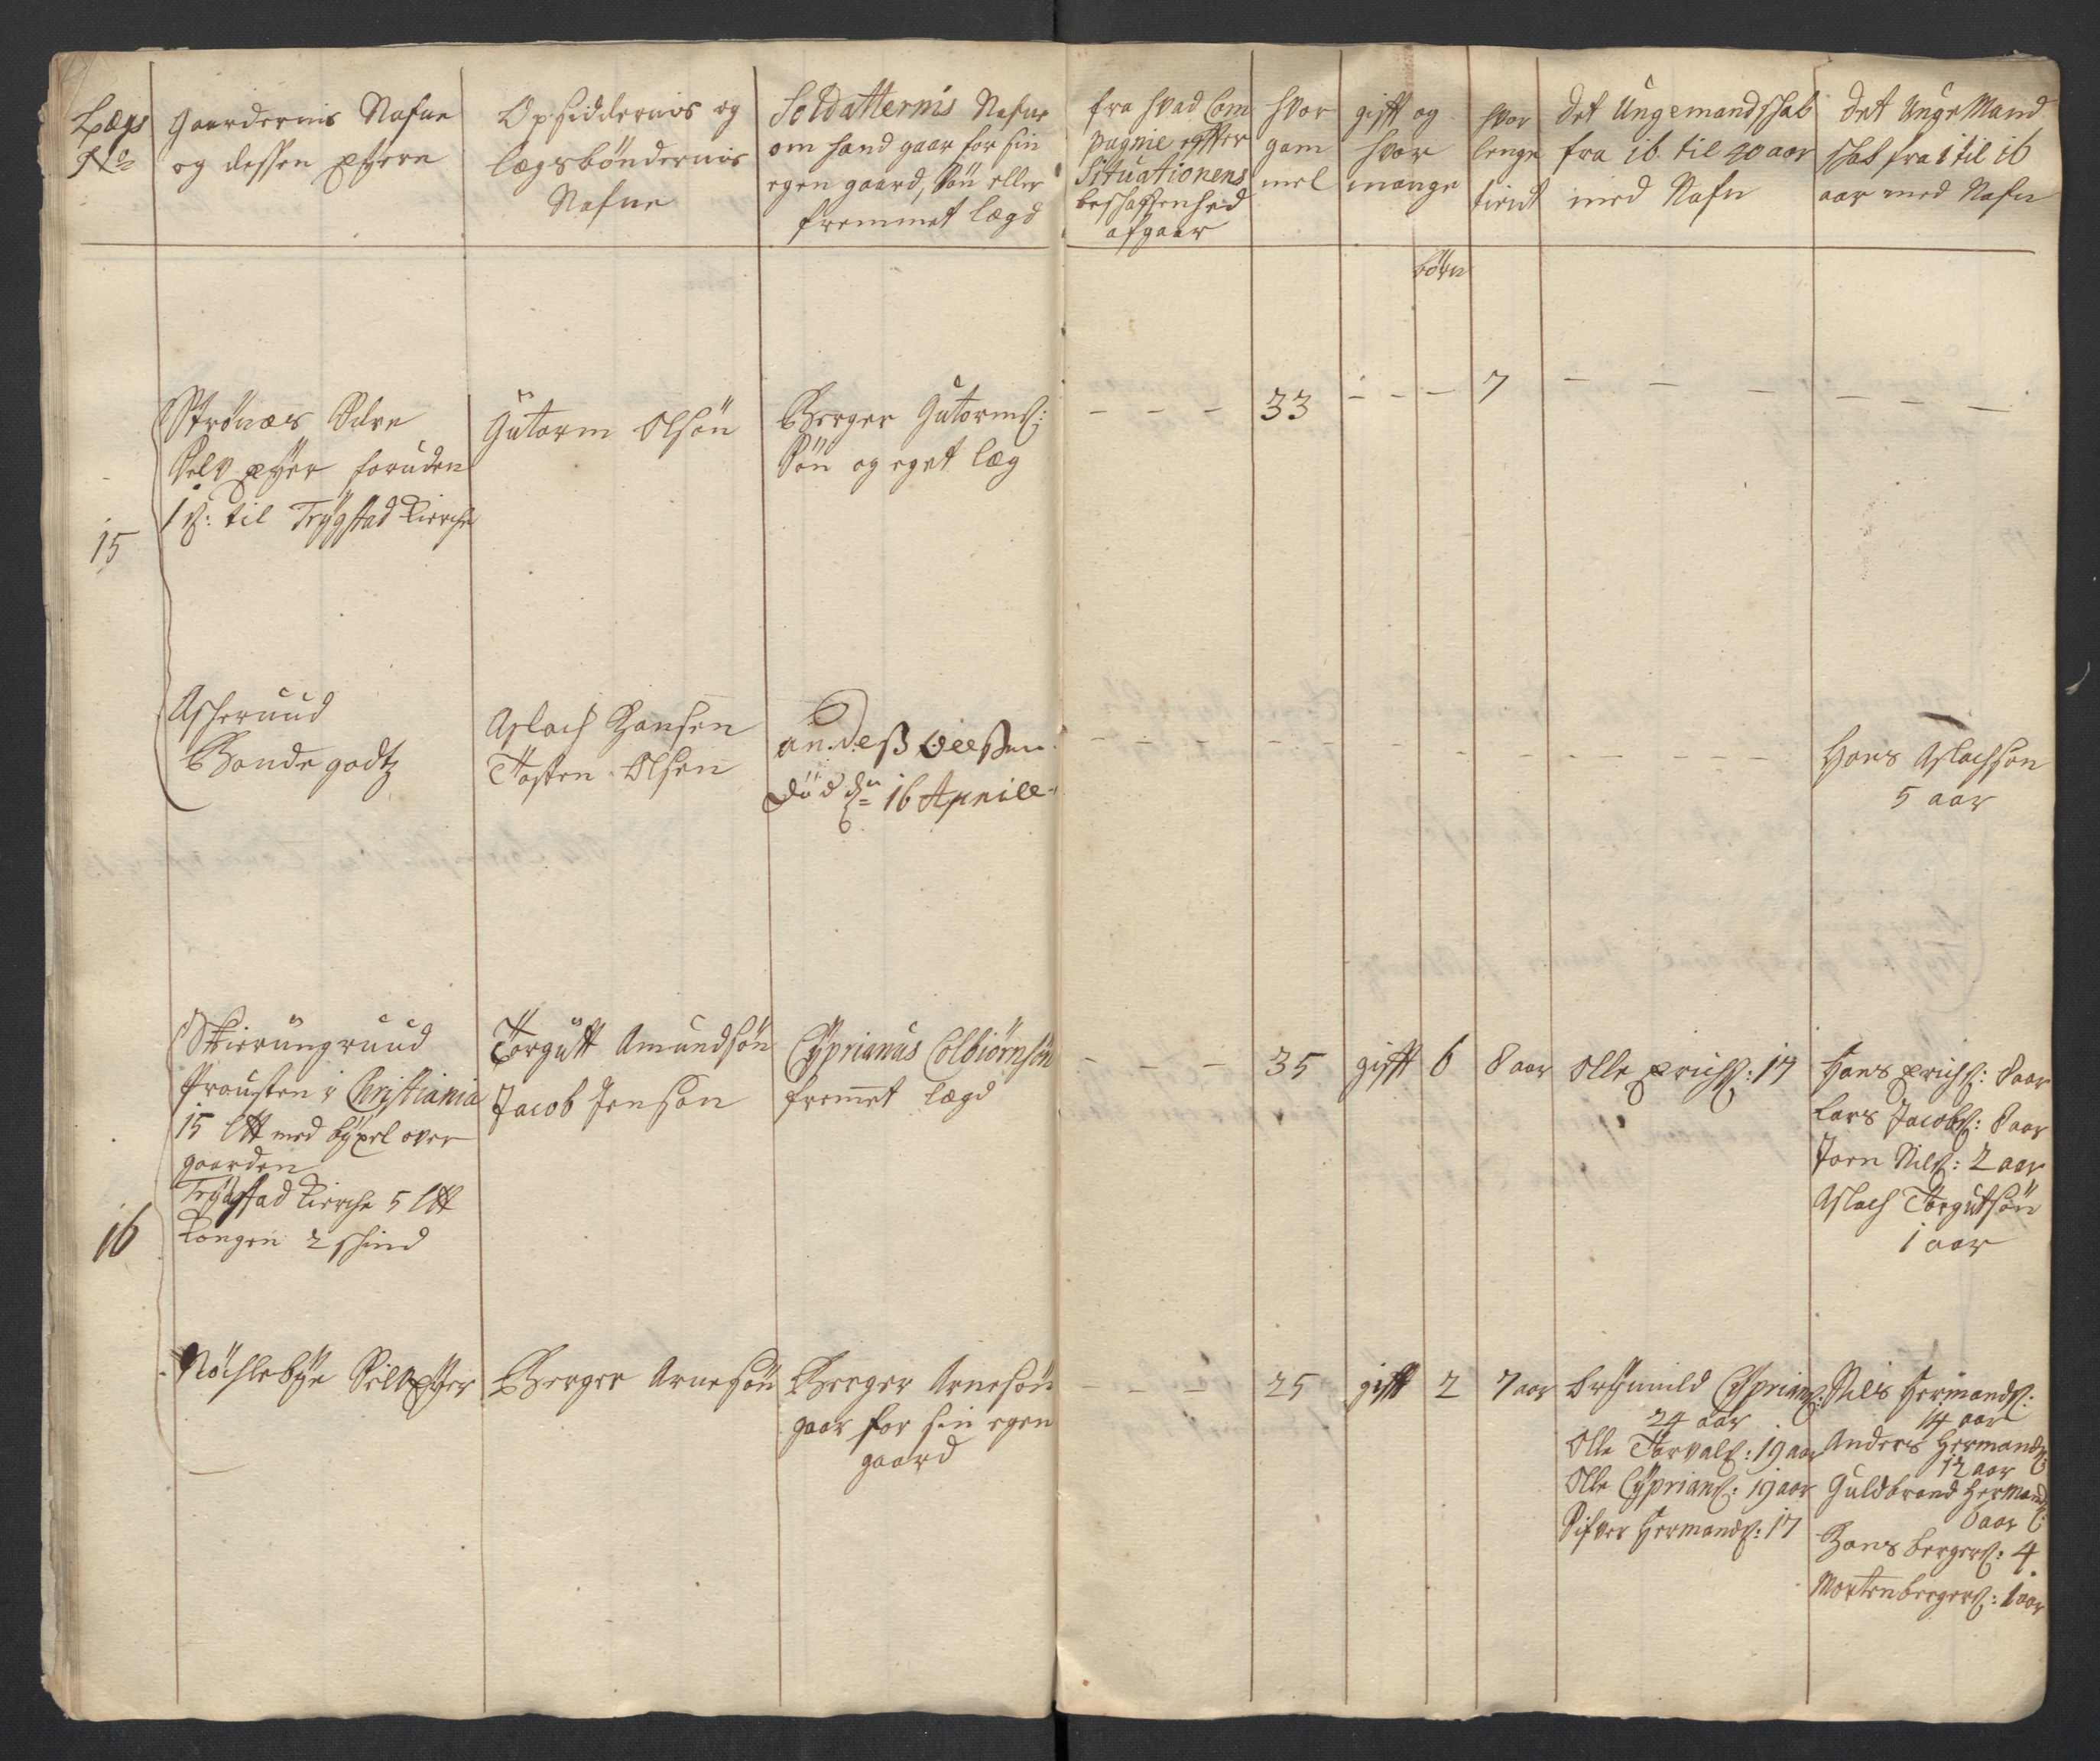 Lægs
No
Gaardernis Nafne
og dessen Eyere
Opsiddernis og
lægsböndernis
Nafne
Soldatternis Nafne
om hand gaar for sin
egen gaard, Sön eller
fremmet lægd
fra hvad Com
pagnie effter
Situationens
beschaffenhed
afgaar
hvor
gam
mel
gifft og
hvor
mange
börn
hvor
lenge
tient
det Ungemandschab
fra 16 til 40 aar
med Nafn
det Unge Mand
schab fra 1 til 16
aar med Nafn
15
Strönæs Söre
Selv Eyer foruden
1 ß: til Trygstad Kirche
Gutorm Olsön
Berger Gutormß:
Sön og eget læg
- - - 33 - - - 7 - - - - - -
Ascheruud
Bondegodtz
Aslach Hansen
Tosten Olsen
andeß oelßen
död dn 16 Aprill
Hans Aslachson
5 aar
16
Skierungruud
Prousten i Christiania
15 Ltt med bÿxel over
gaarden
Trygstad Kirche 5 Ltt
Kongen 2 schind
Torgutt Amundsön
Jacob Jensøn
Cyprianus Colbiörnsön
fremet lægd
- - - 35 gifft 6 8 aar Olle Erichß: 17
Hans Erichß: 8 aar
Lars Jacobß: 8 aar
Joen Nilß: 2 aar
Aslach Torgutsön
1 aar
Nöchlebye Selv Eyer
Berger Arnesön
Berger Arnesön
gaar for sin egen
gaard
- - - 25 gifft 2 7 aar
Cyprianß:
24 aar
Olle Torvalß: 19 aar
Olle Cyprianß: 19 aar
Sifver Hermandß: 17
Nils Hermandß:
14 aar
Anders Hermandß:
12 aar
Guldbrand Hermandß:
8 aar
Hans Bergerß: 4
Morten Bergerß: 1 aar